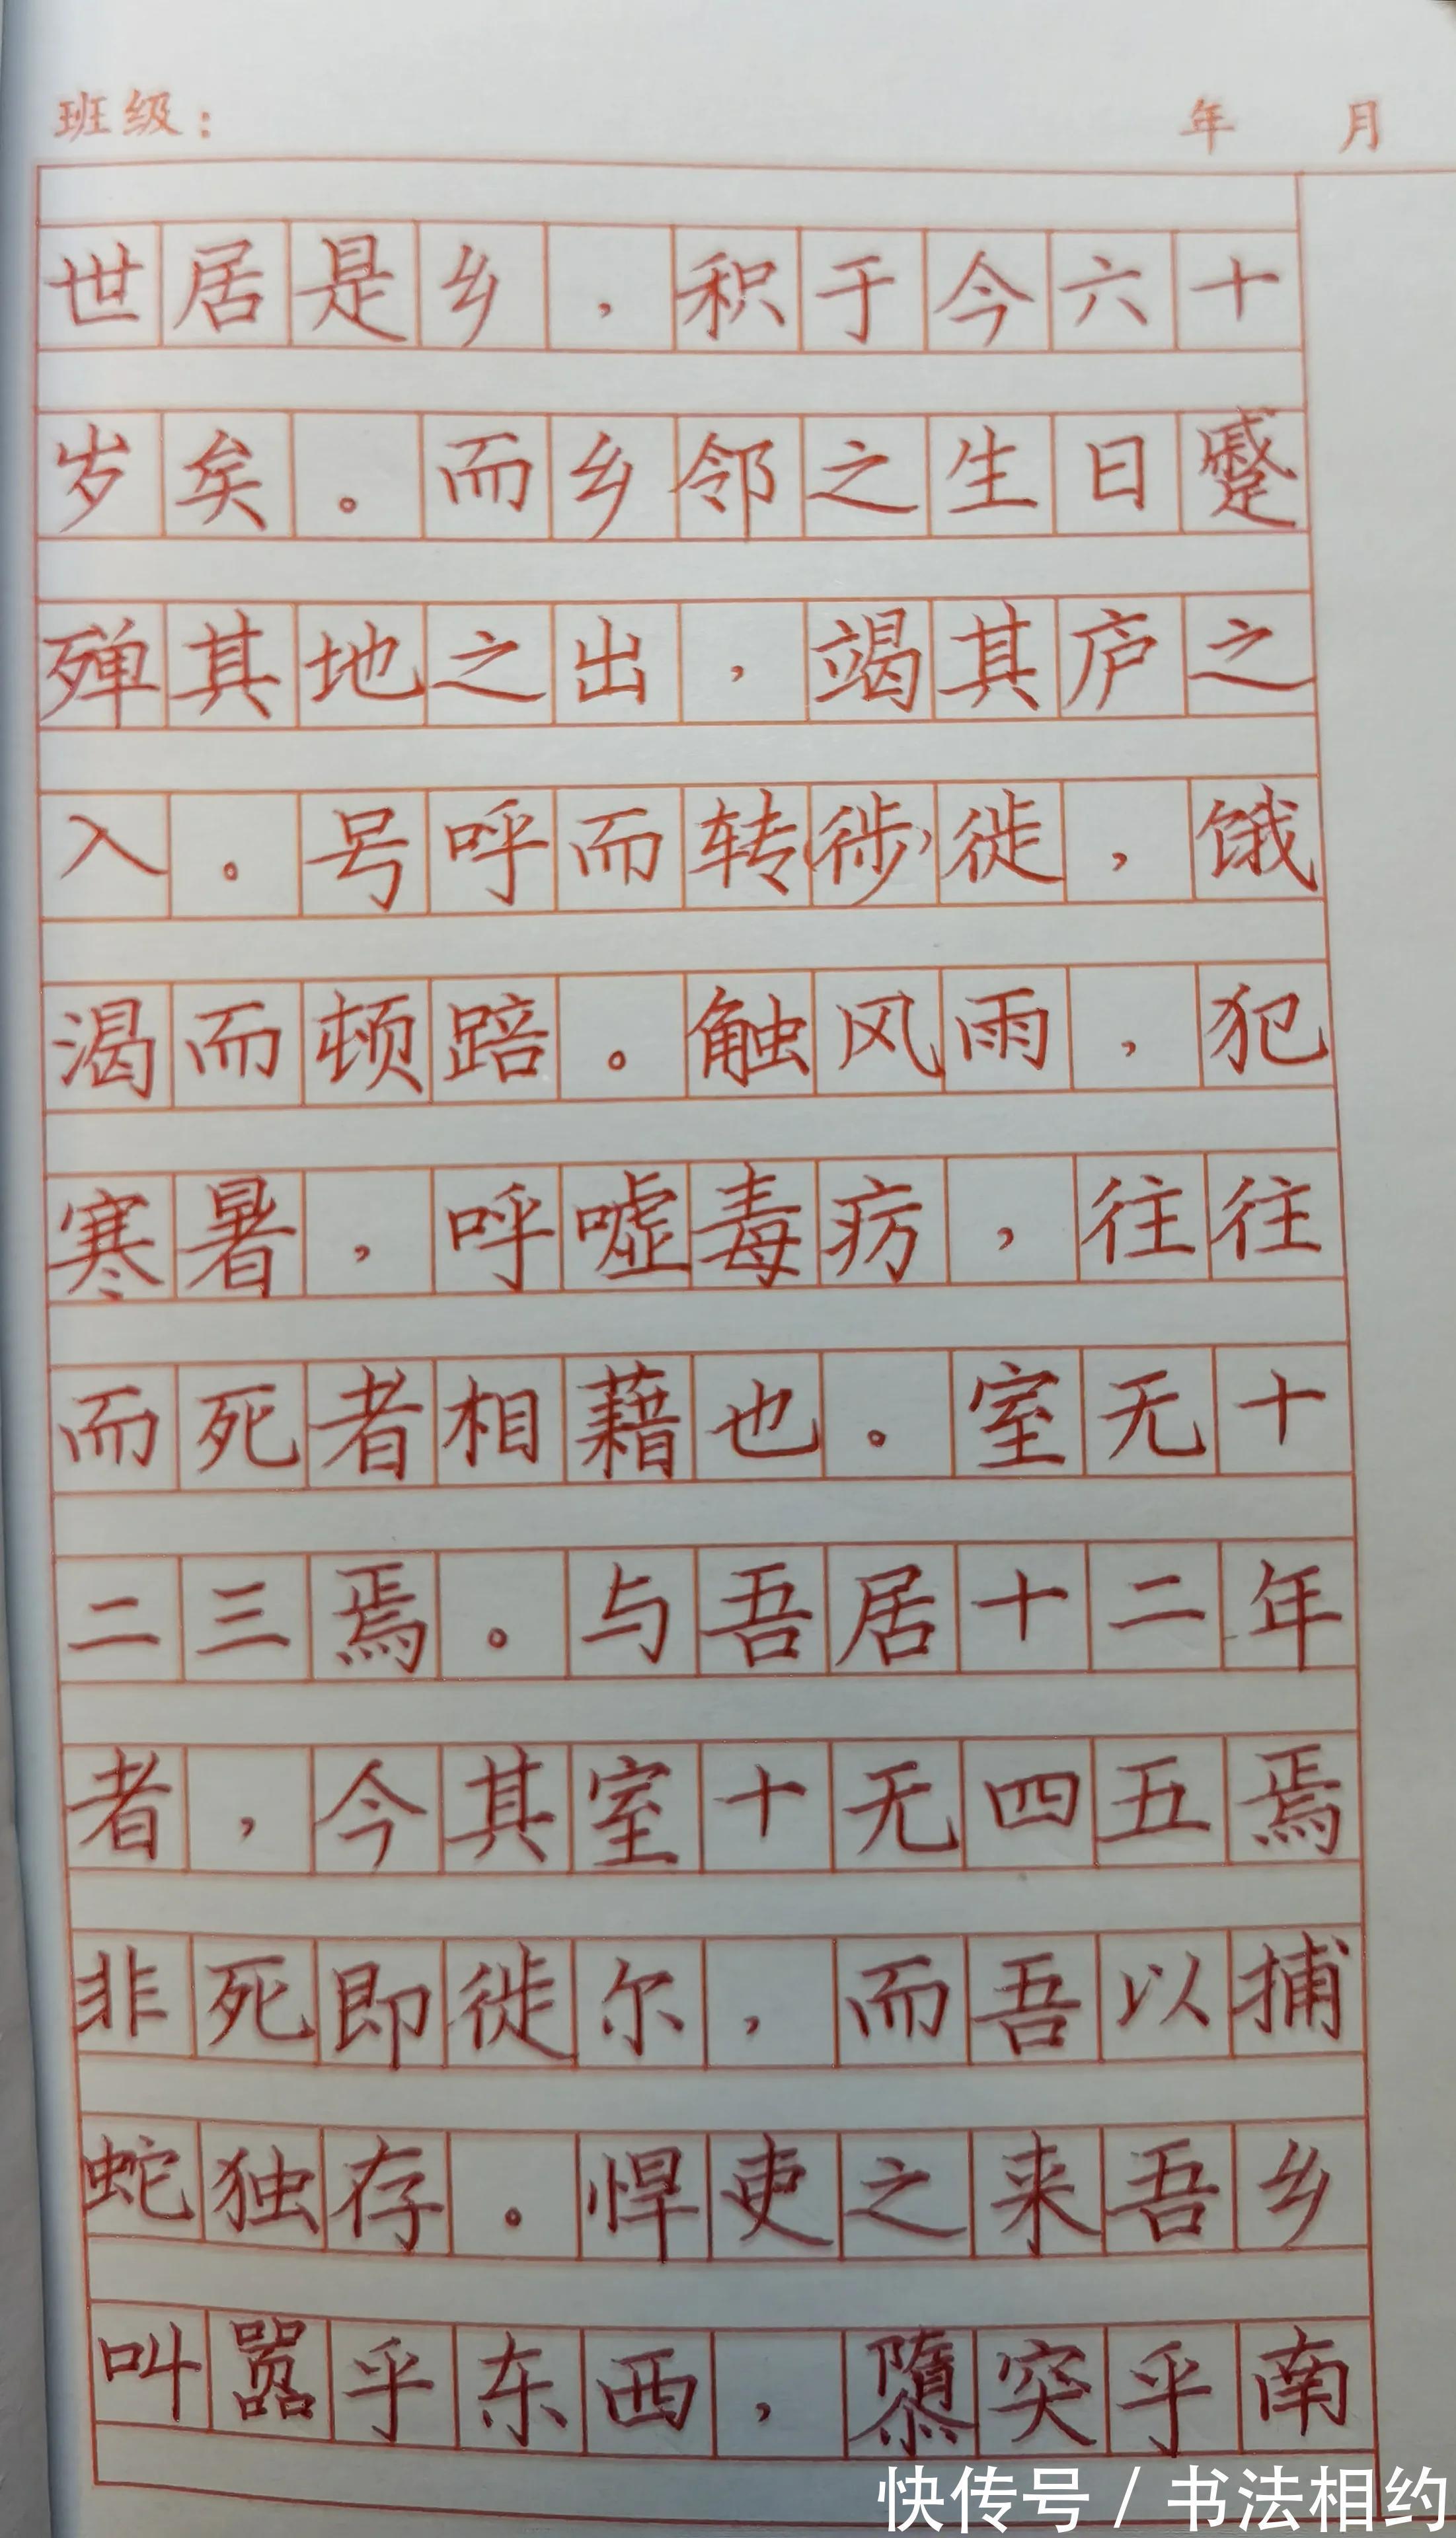 班级： 年 月
世居是乡，积于今六十
岁矣。而乡邻之生日蹙
殚其地之出，竭其庐之
入。号呼而转(徏)徙，饿
渴而顿踣。触风雨，犯
寒暑，呼嘘毒疠，往往
而死者相藉也。室无十
二三焉。与吾居十二年
者，今其室十无四五焉
非死即徙尔，而吾以捕
蛇独存。悍吏之来吾乡
叫嚣乎东西，隳突乎南
快传号/书法相约